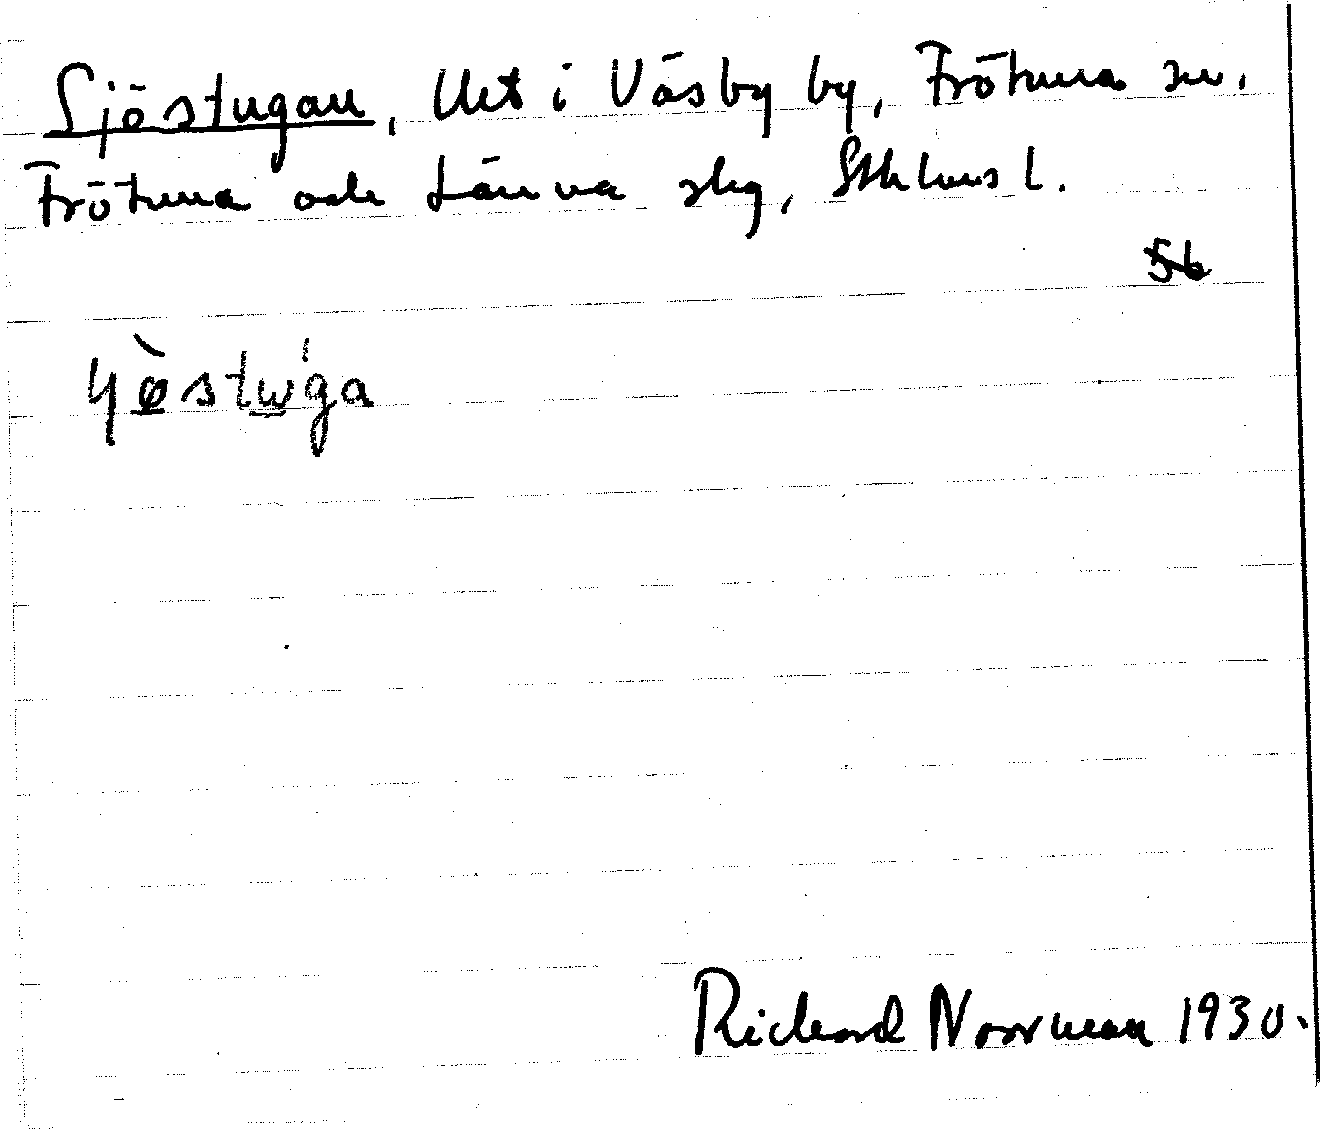 Sjöstugan, Uet i Väsby by, Frötuna sn.
Frötuna och Länna slg, Sthlms l.
56
Richard Norrman 1930.